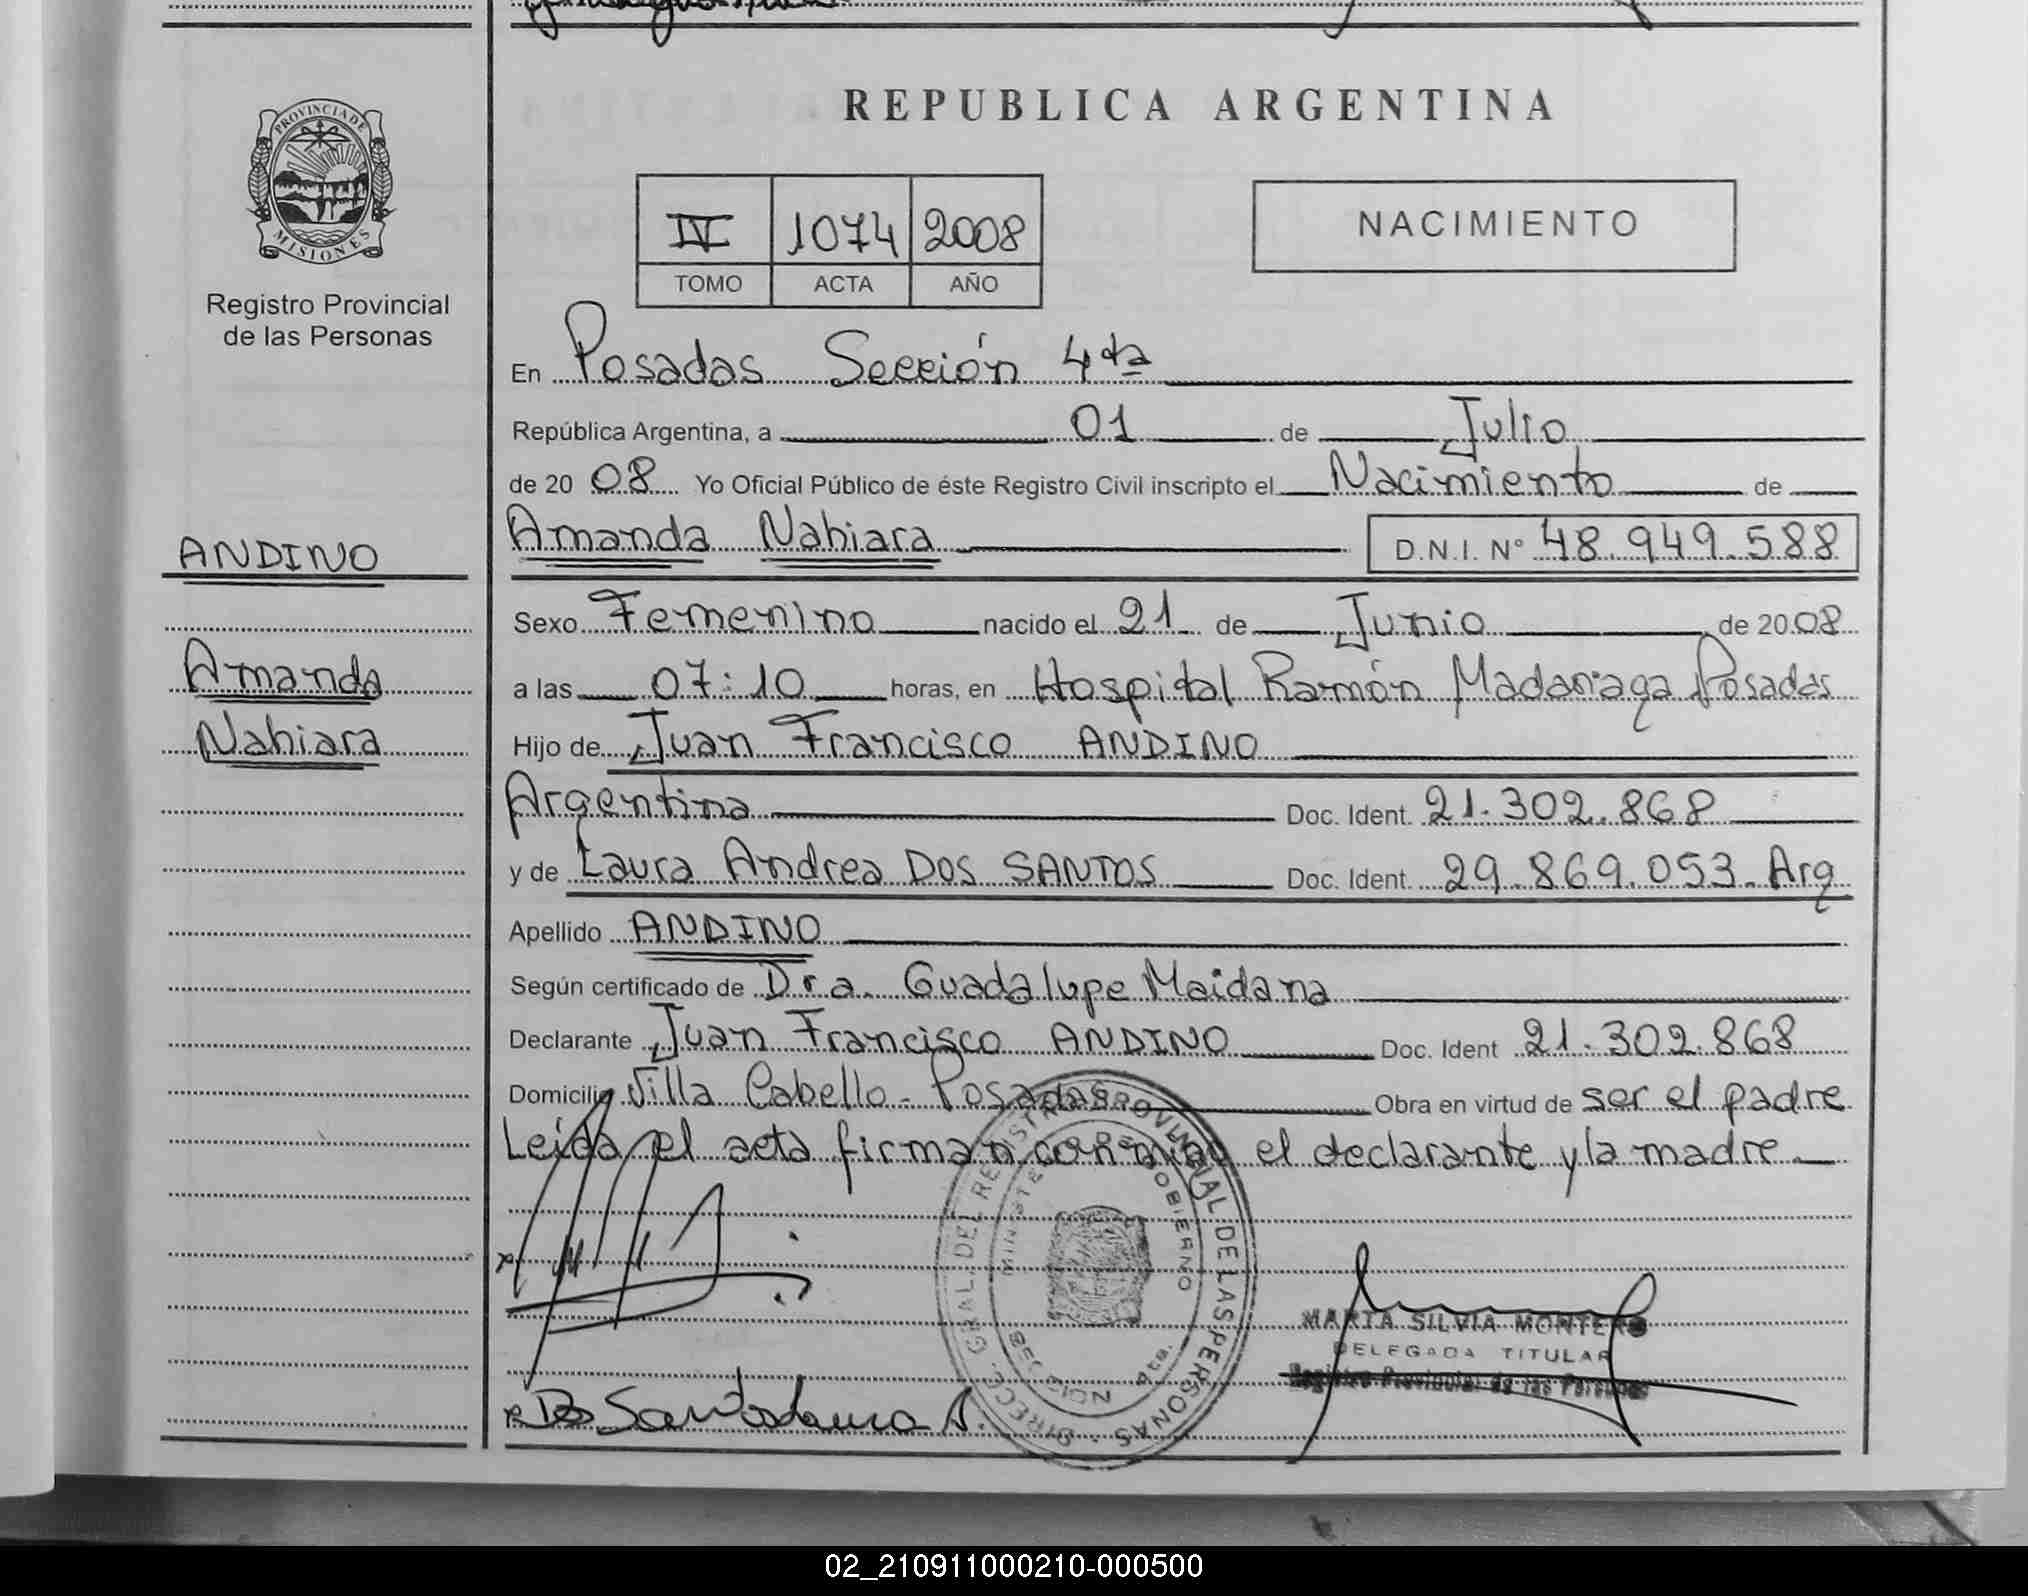 REPUBLICA ARGENTINA
PROVINCIA DE
MISIONES
Registro Provincial
de las Personas
IV 1074 2008
TOMO ACTA AÑO
NACIMIENTO
En Posadas Sección 4ta
República Argentina, a 01 de Julio
de 20 08 Yo Oficial Público de éste Registro Civil inscripto el Nacimiento de
Amanda Nahiara D.N.I. Nº 48.949.588
ANDINO
Amanda
Nahiara
Sexo Femenino nacido el 21 de Junio de 20 08
a las 07:10 horas, en Hospital Ramón Madariaga Posadas
Hijo de Juan Francisco ANDINO
Argentina Doc. Ident. 21.302.868
y de Laura Andrea DOS SANTOS Doc. Ident. 29.869.053. Arg
Apellido ANDINO
Según certificado de Dra. Guadalupe Maidana
Declarante Juan Francisco ANDINO Doc. Ident 21.302.868
Domicilio Villa Cabello - Posadas Obra en virtud de ser el padre
Leída el acta firman conmigo el declarante y la madre
DIRECC. GRAL. DEL REGISTRO PROVINCIAL DE LAS PERSONAS
MINISTERIO GOBIERNO
SECCION 4ta.
MARTA SILVIA MONTERO
DELEGADA TITULAR
Registro Provincial de las Personas
Dos Santos Laura A.
02_210911000210-000500